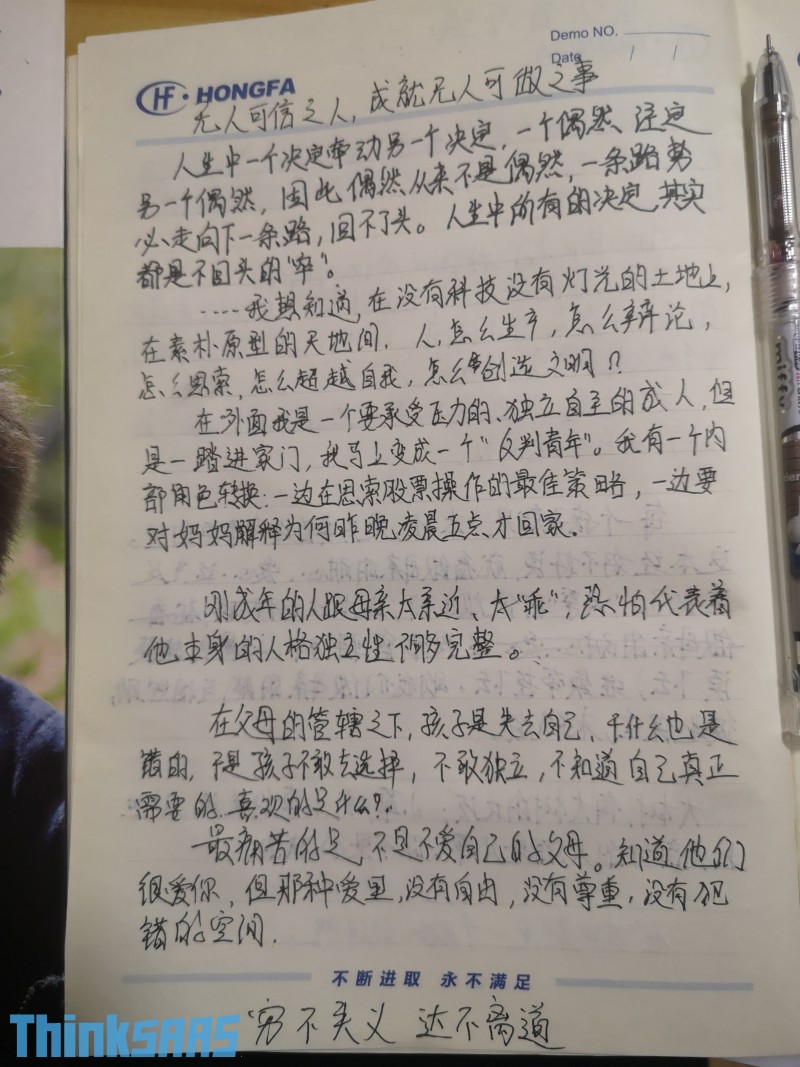 Demo NO.
Date / /
HF · HONGFA
无人可信之人，成就无人可做之事
人生中一个决定牵动另一个决定，一个偶然注定
另一个偶然，因此偶然从来不是偶然，一条路势
必走向下一条路，回不了头。人生中所有的决定，其实
都是不回头的“卒”。
……我想知道，在没有科技没有灯光的土地上，
在素朴原型的天地间，人，怎么生产，怎么辩论，
怎么思索，怎么超越自我，怎么创造文明？
在外面我是一个要承受压力的、独立自主的成人，但
是一踏进家门，我马上变成一个“反判青年”。我有一个内
部角色转换：一边在思索股票操作的最佳策略，一边要
对妈妈解释为何昨晚凌晨五点才回家。
刚成年的人跟母亲太亲近、太“乖”，恐怕代表着
他本身的人格独立性不够完整。
在父母的管辖之下，孩子是失去自己，干什么也是
错的，于是孩子不敢去选择，不敢独立，不知道自己真正
需要的，喜欢的是什么？
最痛苦的是，不是不爱自己的父母。知道他们
很爱你，但那种爱里，没有自由，没有尊重，没有犯
错的空间．
不断进取 永不满足
穷不失义 达不离道
ThinkSAAS
miffy